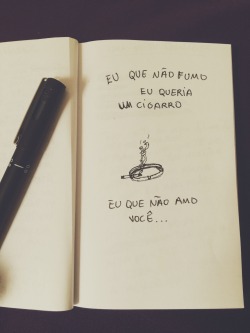 EU QUE NÃO FUMO
EU QUERIA
UM CIGARRO
EU QUE NÃO AMO
VOCÊ...